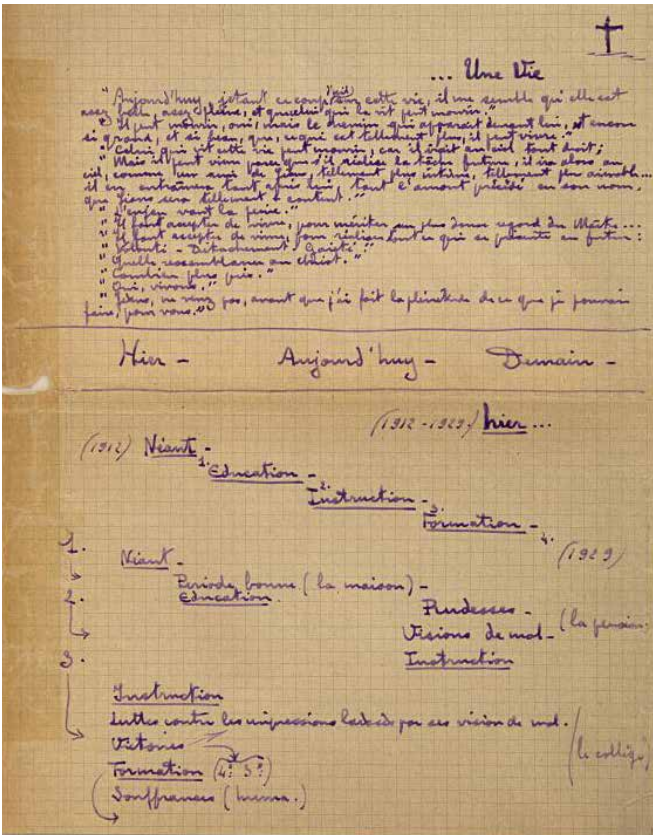 ... Une Vie
"Aujourd'huy, jetant ce coup d'œil sur cette vie, il me semble qu'elle est
assez belle, assez pleine, et que celui qui la vit peut mourir"
"Il peut mourir, oui, mais le chemin qui apparait devant lui, est encore
si grand, et si beau, que, ce qui est tellement peu, il peut vivre."
"Celui qui vit cette vie peut mourir, car il irait au ciel tout droit;
"Mais il peut vivre parce que s'il réalise la tâche future, il ira alors au
ciel, comme un ami de Jésus, tellement plus intime, tellement plus aimable...
il en entrainera tant après lui, tant l'auront précédé en son nom,
que Jésus sera tellement + content."
"L'enjeu vaut la peine."
"Il faut accepter de vivre, pour mériter un plus doux regard du Maître...
"Il faut accepter de vivre, pour réaliser tout ce qui se présente au futur:
"Volonté - Détachement - Gaieté"
"Quelle ressemblance au christ."
"Combien plus près."
"Oui, vivons."
"Jésus, ne venez pas, avant que j'ai fait la plénitude de ce que je pouvais
faire, pour vous."
Hier - Aujourd'huy - Demain -
(1912-1929) hier...
(1912) Néant -
1. Education -
2. Instruction -
3. Formation -
4. (1929)
1. Néant -
Periode bonne (la maison) -
2. Education.
Rudesses - (la pension.
Visions de mal -
3. Instruction
Instruction
Luttes contre les impressions laissées par ses vision de mal.
Victoires (le collège)
Formation (4e 3e)
Souffrances (